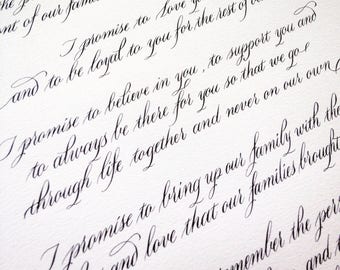 nt of our fam
I promise to love y
and to be loyal to you for the rest of
I promise to believe in you, to support you and
to always be there for you so that we go
through life together and never on our own
I promise to bring up our family with the
and love that our families brought
remember the pers
and t